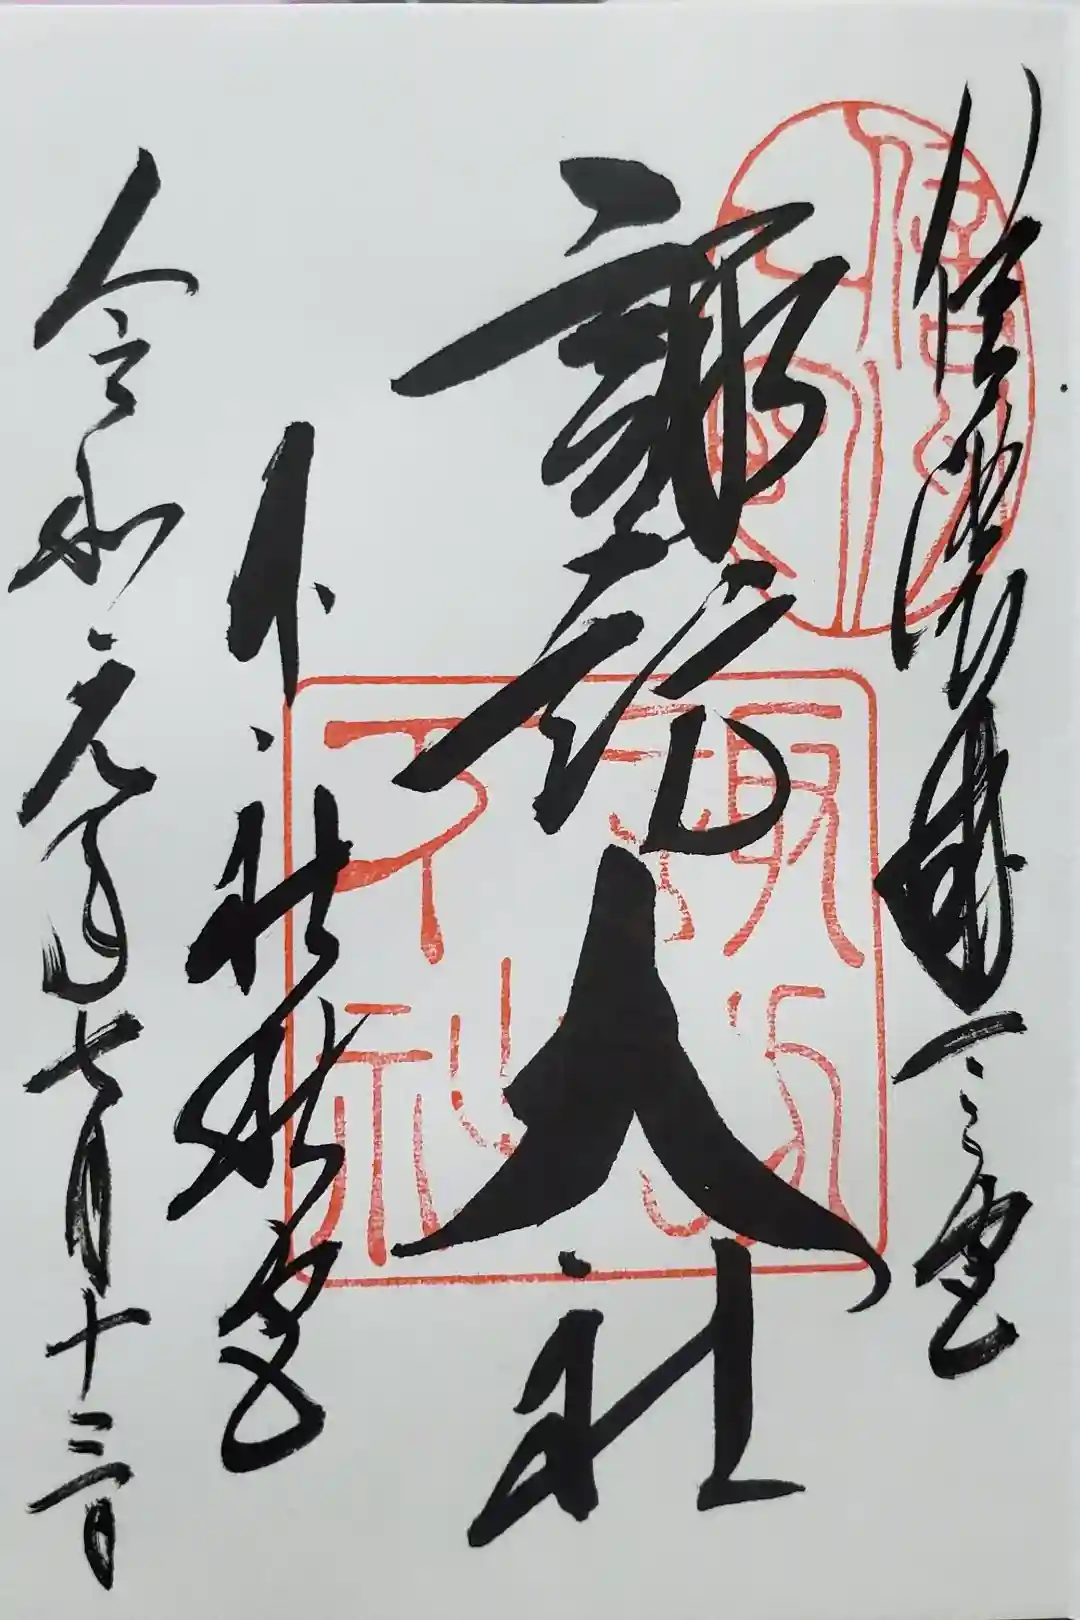 信濃國一之宮
諏訪大社
下社秋宮
令和元年七月十三日